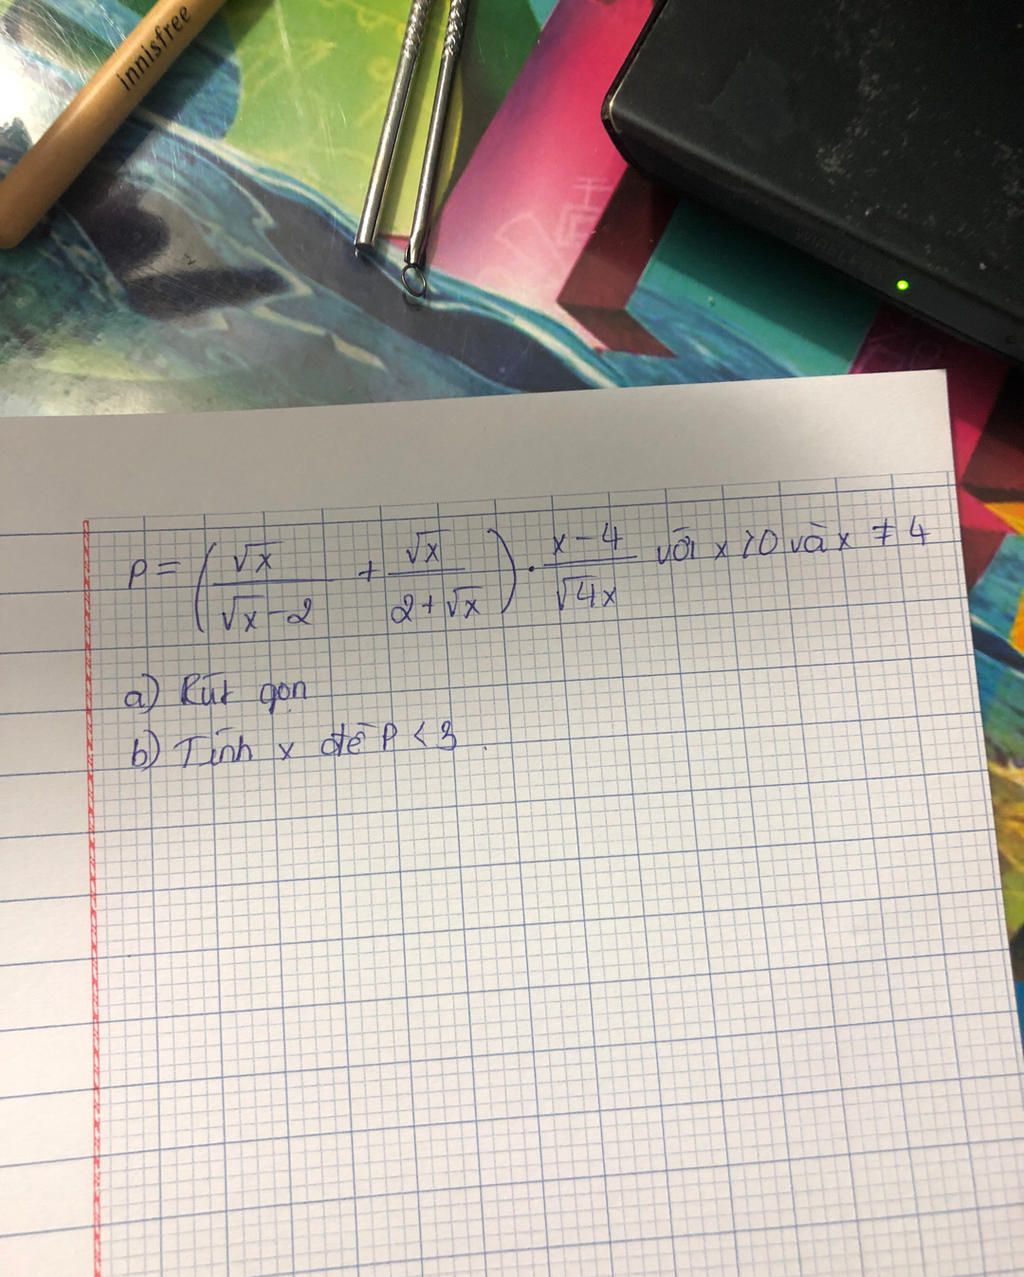 innisfree
P = (√x / (√x - 2) + √x / (2 + √x)) . (x - 4) / √4x với x > 0 và x ≠ 4
a) Rút gọn
b) Tính x để P < 3.